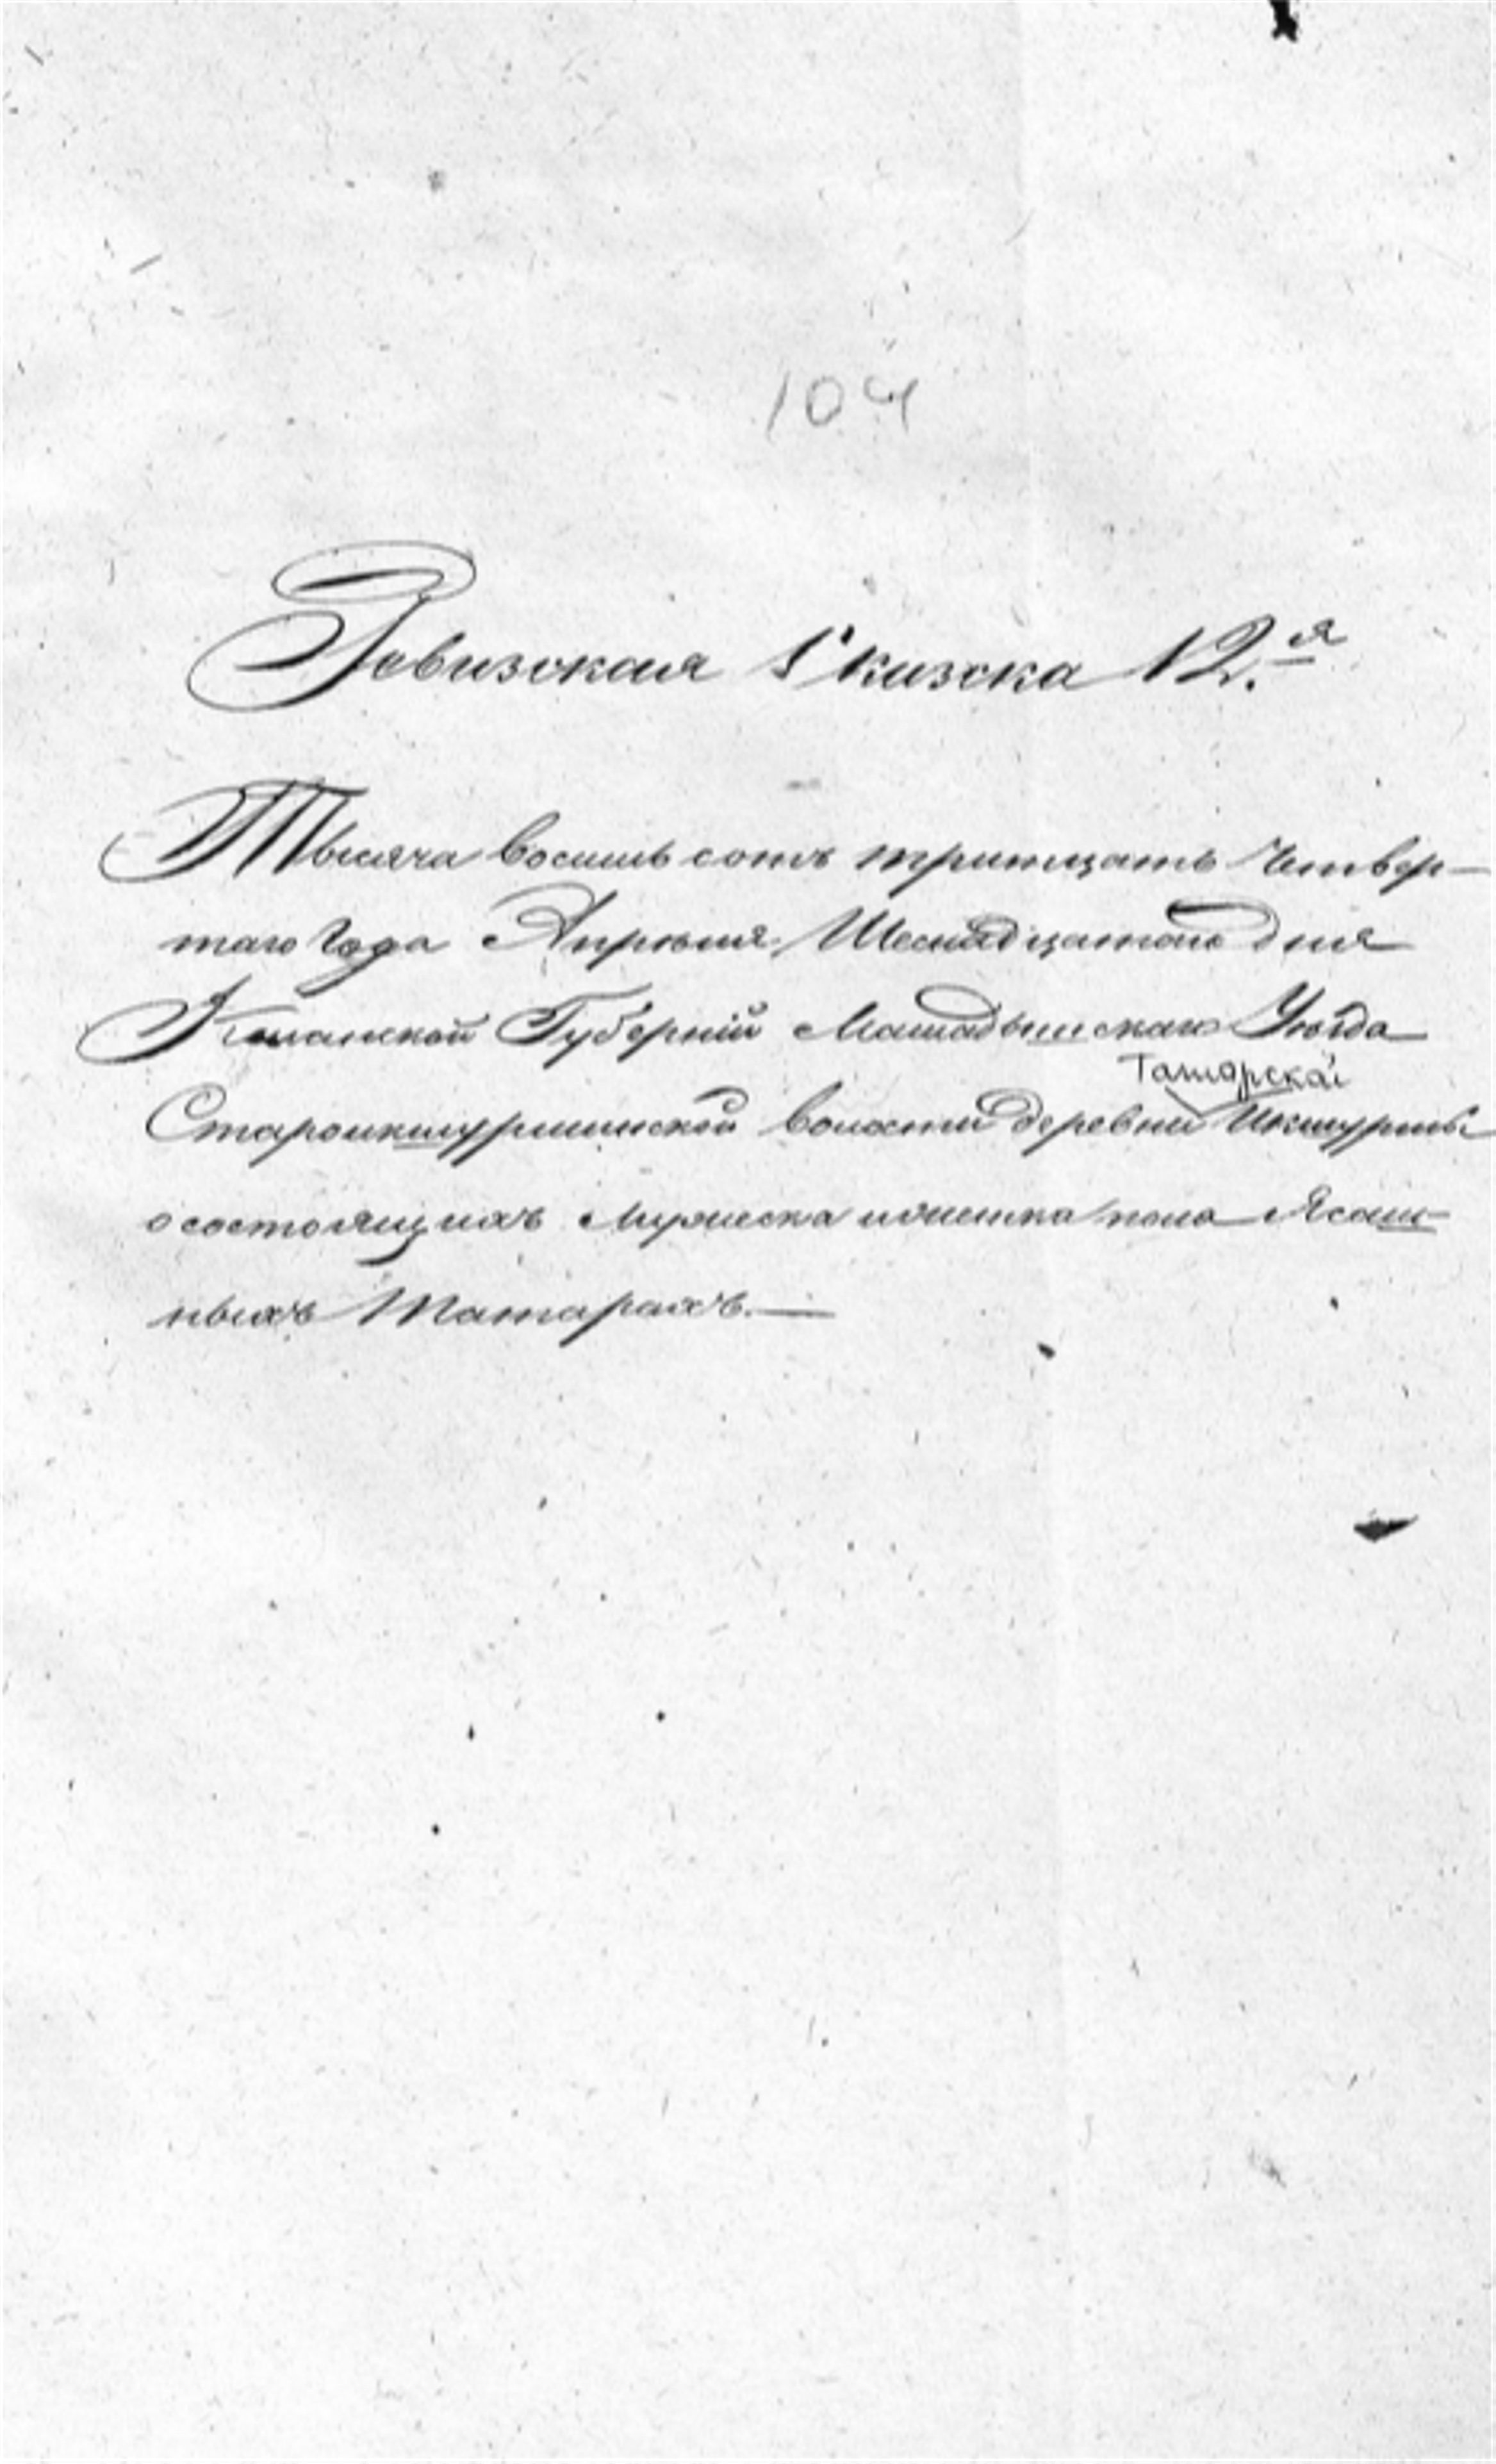 104
Ревизская Скизска 12.я
Тысяча восемь сотъ тритцать Четвер-
таго Года Апреля Шеснадцатого дня
Казанской Губерніи Мамадышскаго Уезда
Татарскаі
Староикшурминской волости деревни Икшурмы
о состоящихъ Мужеска и женска пола Ясаш-
ныхъ Татарахъ.—